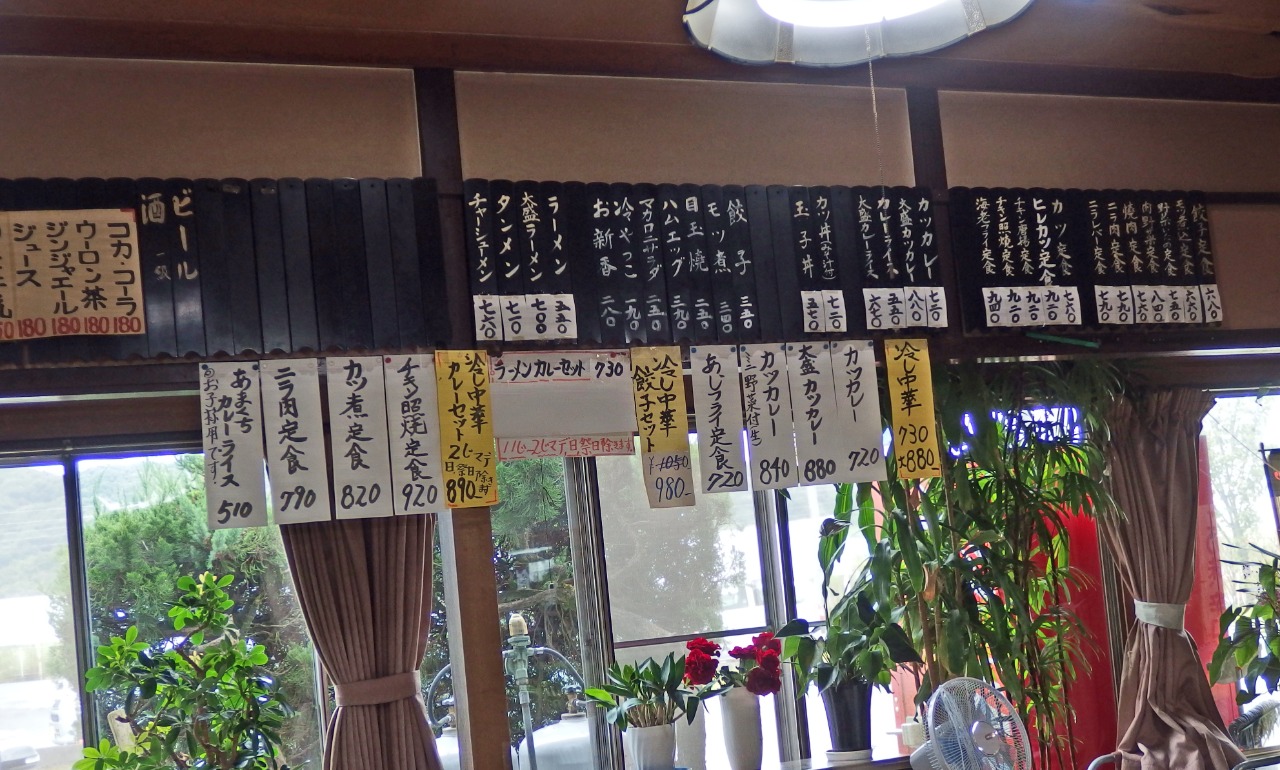 カツカレー 七二〇
大盛カツカレー 八八〇
カレーライス 五一〇
大盛カレーライス 六七〇
カツ丼(みそ汁付) 七二〇
玉子丼 五七〇
餃子 三五〇
モツ煮 二四〇
目玉焼 二五〇
ハムエッグ 三九〇
マカロニサラダ 二五〇
冷やっこ 一九〇
お新香 二八〇
ラーメン 五五〇
大盛ラーメン 七〇〇
タンメン 七一〇
チャーシューメン 七六〇
餃子定食 六八〇
カツ定食
ヒレカツ定食 九二〇
チキン照焼定食 九二〇
海老フライ定食 九四〇
焼肉定食
ニラ肉定食
ニラレバー定食 七九〇
ビール
酒 一級
コカ・コーラ 180
ウーロン茶 180
ジンジャエール 180
ジュース 180
冷し中華 730 大880
カツカレー 720
大盛カツカレー 880
カツカレー ミニ野菜付 840
あじフライ定食 720
冷し中華 餃子セット ¥1050 980
ラーメンカレーセット 730
11じ〜2じマデ 日祭日除きます
冷し中華 カレーセット 2じマデ 日祭日除きます 890
チキン照焼定食 920
カツ煮定食 820
ニラ肉定食 790
あまくち カレーライス お子様用です。 510